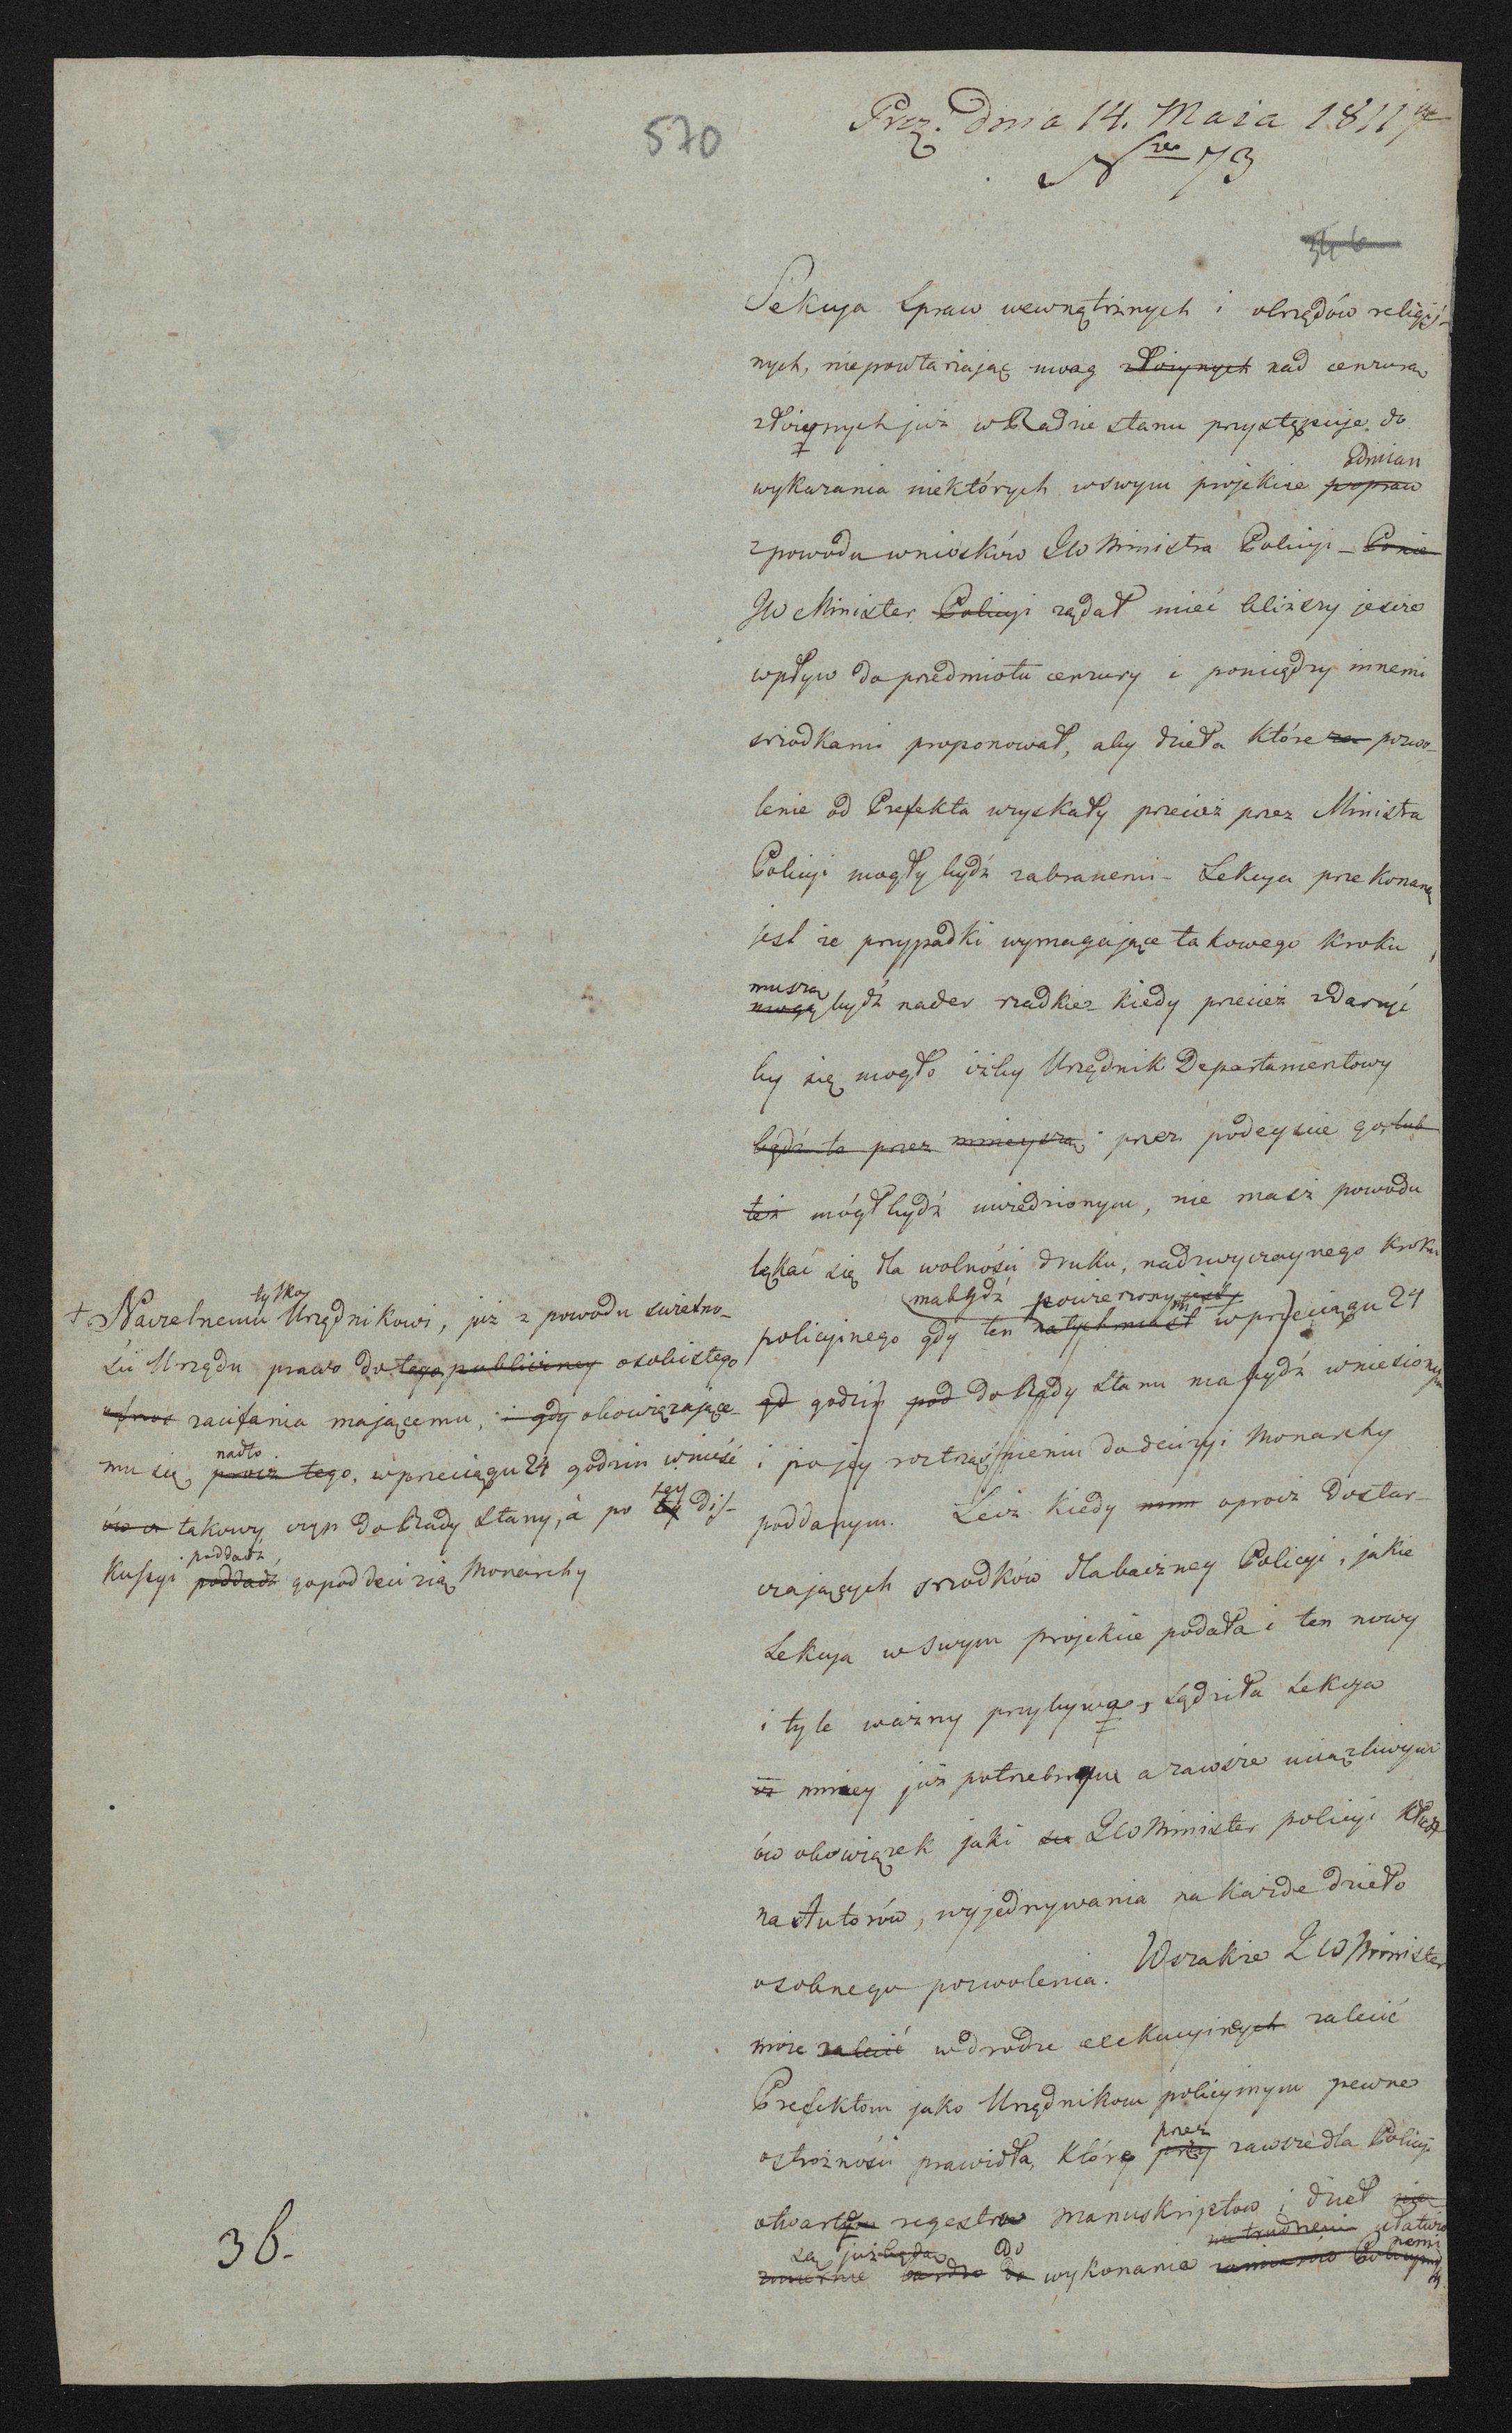 570
Prez. dnia 14. Maia 1811
Nro 73
346
Sekcya Spraw wewnątrznych i obrzędów religij-
nych, niepowtarzając uwag złożynych nad cenzurą
złożynych już w Radzie stanu przystępuje do
odmian
wykazania niektórych w swym projekcie popraw
z powodu wniosków JW Ministra Policyi – Ponie
JW Minister Policyi żądał mieć bliższy jescze
wpływ do przedmiotu cenzury i pomiędzy innemi
srzodkami proponował, aby dzieła które za pozwo-
lenie od Prefekta uzyskały przecież przez Ministra
Policyi mogły bydź zabranemi – Sekcya przekonaną
jest że przypadki wymagające takowego kroku,
muszą
mogą bydź nader rzadkie – kiedy przecież zdarzyć
by się mogło iżby Urzędnik Departamentowy
bądź to przez mnieyszą przez podeyscie go, lub
też mógł bydź uwiedzionym, nie masz powodu
lękać się dla wolności druku, nadzwyczaynego kroku
ma bydź powierzony
policyinego gdy ten natychmiast w przeciągu 24
gd godzin pod do Rady Stanu ma bydź wniesionym
i po jey roztrząśnieniu do decizyi Monarchy
poddanym. Lecz kiedy oprócz dostar-
czających srzodków dla baczney Policyi, jakie
Sekcya w swym projekcie podała i ten nowy
i tyle ważny przybywa, sądziła Sekcya
iż mniey już potrzebnym a zawsze uciążliwym
ów obowiązek jaki JW Minister policyi kładł
na Autorów, wyjednywania na każde dzieło
osobnego pozwolenia. Wszakże JW Minister
może zalecić w drodze exekucyinych zalecić
Prefektom jako Urzędnikom policyinym pewne
przez
ostrożności prawidła, które przy zawsze dla Policyi
otwarte regestra manuskryptów i dzieł
są już będą do nie trudnemi ułatwio
nemi
bardzo do wykonania zamiarów Policyinych
tylko
+ Naczelnemu Urzędnikowi, już z powodu swietno-
ści Urzędu prawo do tego publiczney osobistego
zaufania mającemu, i gdy obowiązające-
nadto
mu się procz tego, w przeciągu 24 godzin wnieść
tey
ów w takowy czyn do Rady Stanu, a po tej dis-
poddadź
kussyi poddadź go pod decizią Monarchy
36.